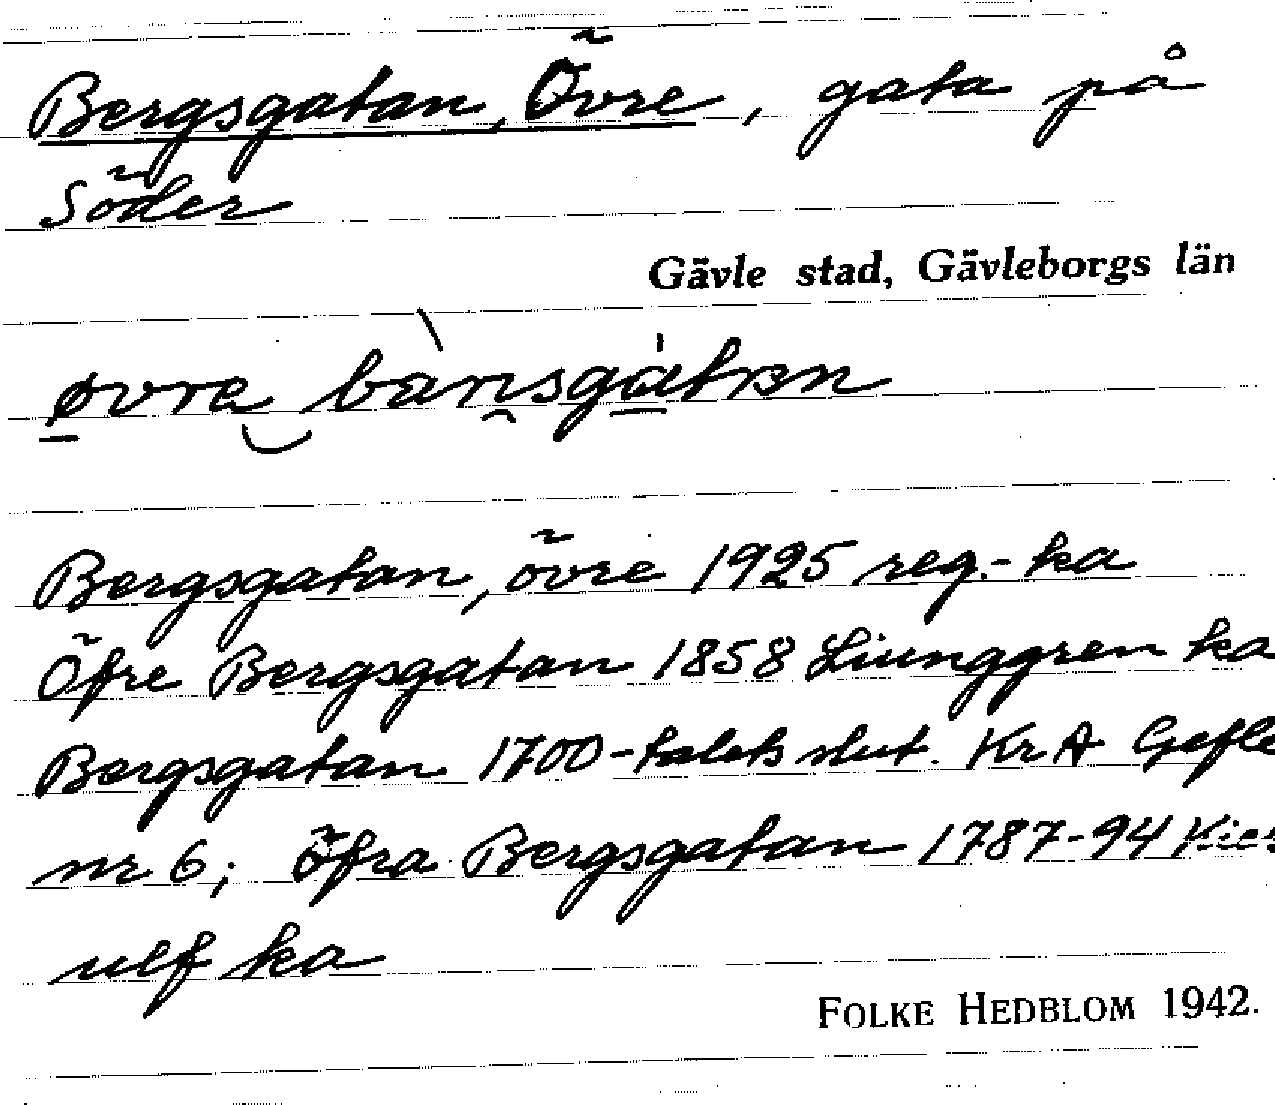 Bergsgatan, Övre, gata på
Söder
Gävle stad, Gävleborgs län
Bergsgatan, övre 1925 reg.-ka
Öfre Bergsgatan 1858 Liunggren ka
Bergsgatan 1700-talets slut. KrA Gefle
nr 6; öfra Bergsgatan 1787-94 Kies
ulf ka
FOLKE HEDBLOM 1942.